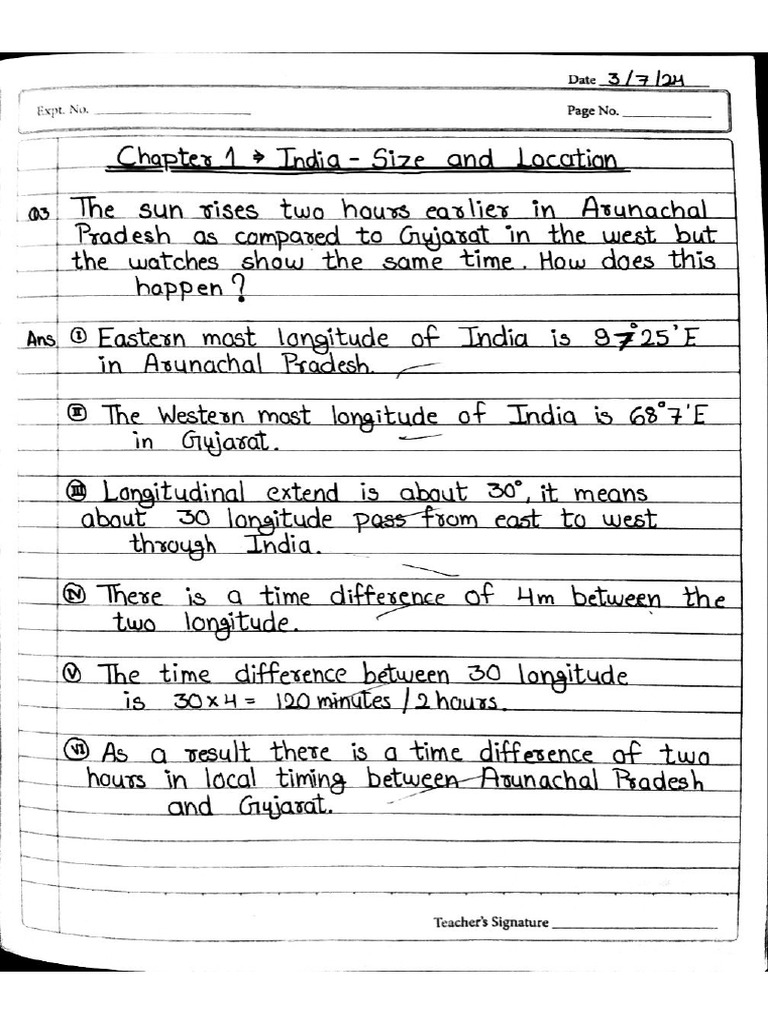 Date 3/7/24
Expt. No.
Page No.
Chapter 1 → India - Size and Location
Q3 The sun rises two hours earlier in Arunachal
Pradesh as compared to Gujarat in the west but
the watches show the same time. How does this
happen?
Ans ① Eastern most longitude of India is 97°25'E
in Arunachal Pradesh.
Ⅱ The Western most longitude of India is 68°7'E
in Gujarat.
Ⅲ Longitudinal extend is about 30°, it means
about 30 longitude pass from east to west
through India.
Ⅳ There is a time difference of 4m between the
two longitude.
Ⅴ The time difference between 30 longitude
is 30×4 = 120 minutes / 2 hours.
Ⅵ As a result there is a time difference of two
hours in local timing between Arunachal Pradesh
and Gujarat.
Teacher's Signature